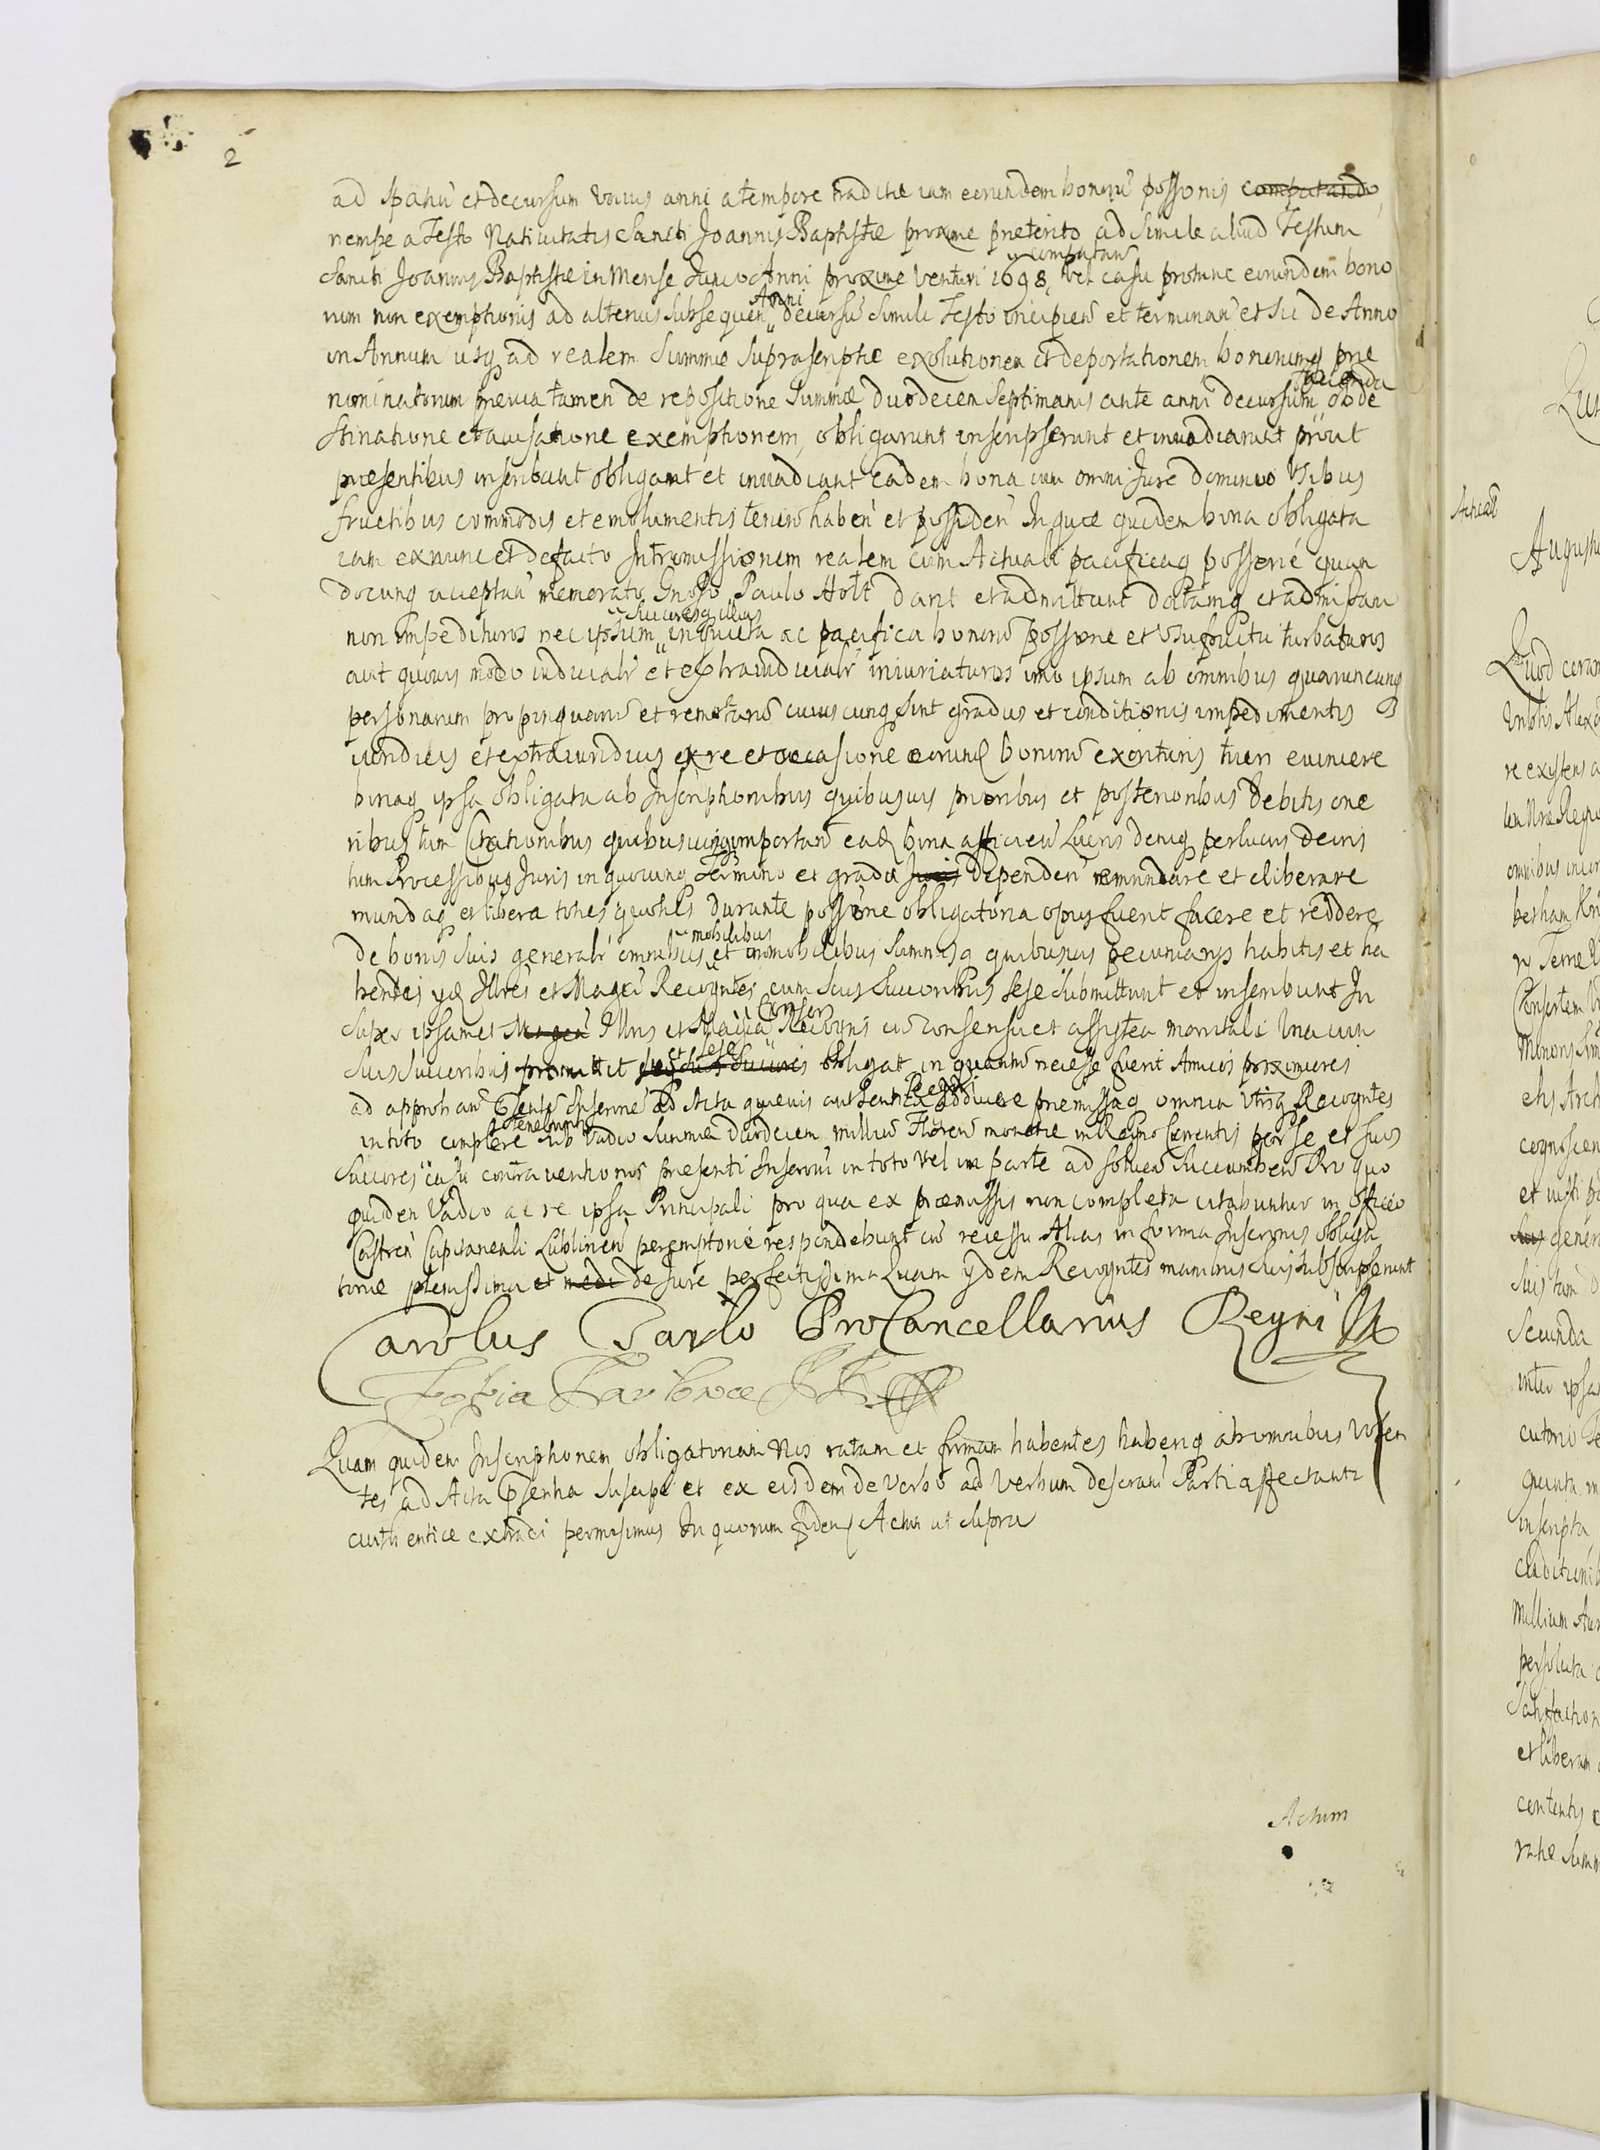 2
ad spatiū et decursum unius anni a tempore traditæ iam eorundem bonorū possonis computando
nempe a Festo Nativitatis Sancti Joannis Baptistæ proxime præterito ad simile aliud Festum
Sancti Joannis Baptistæ in Mense Junio Anni proxime venturi 1698, computan vel casu protunc eorundem bono
rum non exemptionis ad alterius subsequen Anni decursū simili Festo incipien et terminan et sic de Anno
in Annum usq ad realem Summæ suprascriptæ exolutionem et deportationem bonorumq præ
nominatorum prævia tamen de repositione Summæ duodecem Septimanis ante anni decursum facienda obde
stinatione et avisatione exemptionem, obligarunt inscripserunt et invadiarunt prout
præsentibus inscribunt obligant et invadiant eadem bona cum omni Jure dominio Usibus
fructibus commodis et emolumentis tenen haben et possiden In quæ quidem bona obligata
iam ex nunc et de facto Intromissionem realem cum Actuali pacificaq possone quan
docunq acceptan memorato Gnoso Paulo Holt dant et admittunt datamq et admissam
non impedituros nec ipsum Succoresq illius in quieta ac pacifica bonorū possione et usufructu turbaturos
aut quovis modo iudicialr et extraiudicialr iniuriaturos imo ipsum ab omnibus quaruncunq
personarum propinquarū et remotarū cuiuscunq sint gradus et conditionis impedimentis
iuridicis et extraiuridicis ex re et occasione eorunq bonorū exorituris tueri evincere
bonaq ipsa obligata ab Inscriptionibus quibusvis prioribus et posterioribus Debitis one
ribus tum Citationibus quibusvis importan eaq bona afficien Lucris deniq perlucris devin
tum Processibus Juris in quocunq Termino et gradu Juris dependen emundare et eliberare
mundaq et libera toties quoties durante possione obligatoria opus fuerit facere et reddere
de bonis suis generalr omnibus mobilibus et immobilibus Summisq quibusvis pecuniarijs habitis et ha
bendis ijq Illres et Magci Recogntes cum suis Succoribus sese submittunt et inscribunt In
super ipsamet Magca Illris et Magca Consors Recogns cū consensu et assistea maritali una cum
suis Succoribus promittit et sese obligat in quantū necesse fuerit Amicos proximiores
ad approban Psentē Inscrionē ad Acta quævis authentica Regni adducere præmissaq omnia Utiq Recogntes
in toto complere tenebuntur sub vadio Summæ duodecem millium Florenorū monetæ in Regno Currentis per se et suos
Succores casu contraventionis præsenti Inscrioni in toto vel in parte ad solven succumben Pro quo
quidem Vadio ac re ipsa Principali pro qua ex præmissis non completa citabuntur in Officio
Castren Capitaneali Lublinen peremptorie respondebunt cū recessu Alias in forma Inscrionis obliga
toriæ plenissima et medi de Jure perfectissima Quam ijdem Recogntes manibus suis subscripserunt
Carolus Tarlo ProCancellarius Regni
Zofia Tarłowa
Quam quidem Inscriptionem obligatoriam Nos ratam et firmam habentes haberiq ab omnibus Volen
tes ad Acta Psentia suscipi et ex eisdem de verbo ad verbum descrani Parti affectanti
authentice extradi permisimus In quorum fidem Actum ut supra
Actum